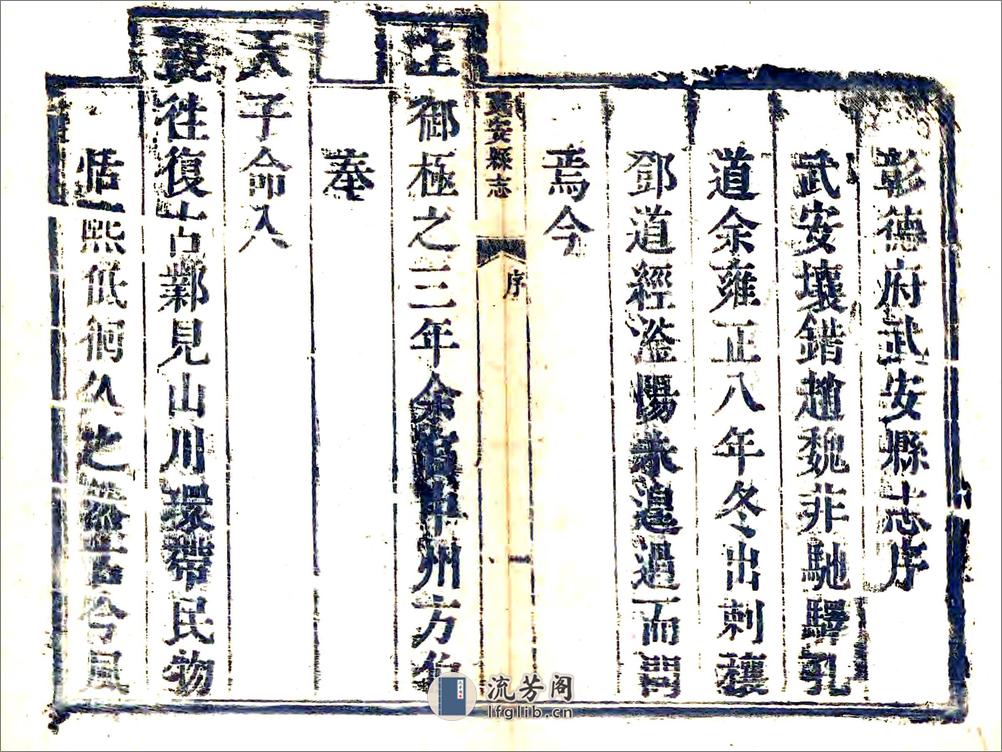 彰德府武安縣志序
武安壤錯趙魏非馳驛孔
道余雍正八年冬出刺穰
鄧道經滏陽未遑過而問
焉今
上御極之三年余 中州方伯
奉
天子命入
覲往復古鄴見山川環帶民物
恬熙低徊久之 今風
武安縣志
序
一
流芳阁
lfglib.cn